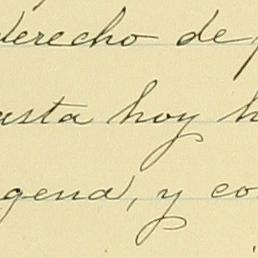 derecho de
hasta hoy h
gena, y co